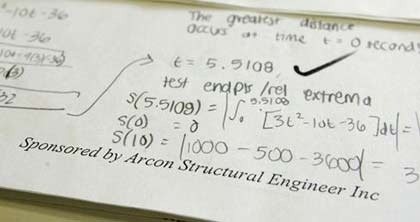 ²-10t-36
The greatest distance
occurs at time t = 0 seconds
-10t -36
t = 5.5108
test endpts/rel extrema
S(5.5108) = |∫₀^5.5108 [3t²-10t-36]dt| =
S(0) = 0
S(10) = |1000 - 500 - 3600| = 3
32
Sponsored by Arcon Structural Engineer Inc